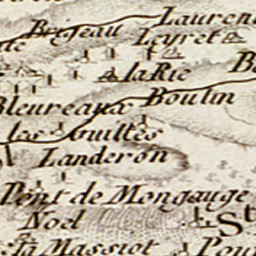 Laurent
Brigeau
Leyret
la Rie
Bleureaux
Boulin
les Anultes
Landeron
Pont de Mongauge
Noel
St
la Massiot